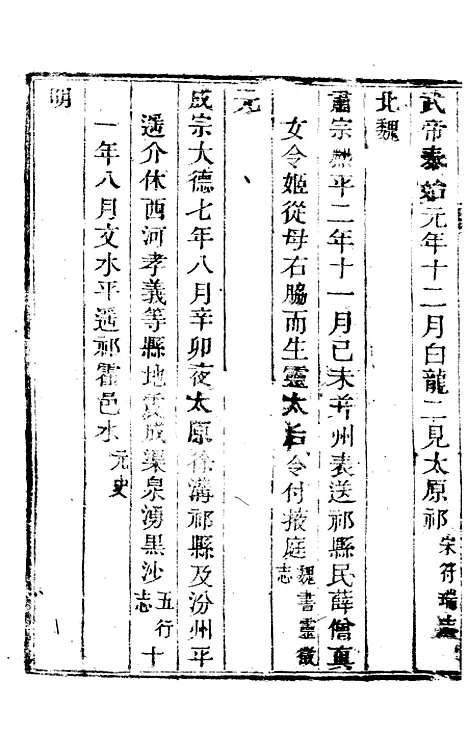 武帝泰始元年十二月白龍二見太原祁宋符瑞志
北魏
肅宗熙平二年十一月己未幷州表送祁縣民薛僧真
女令姬從母右脇而生靈太后令付掖庭魏書靈徵志
元
成宗大德七年八月辛卯夜太原徐溝祁縣及汾州平
遥介休西河孝義等縣地震成渠泉湧黑沙五行志十
一年八月文水平遥祁霍邑水元史
明